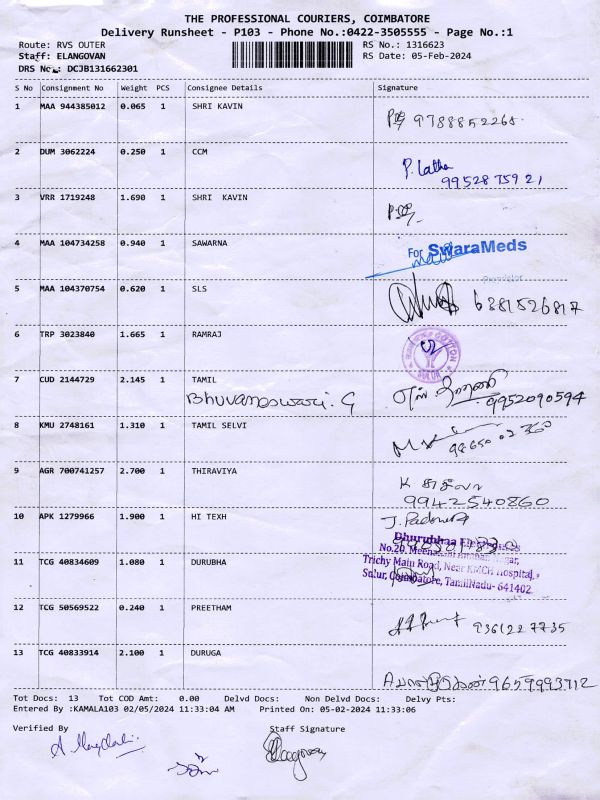 THE PROFESSIONAL COURIERS, COIMBATORE
Delivery Runsheet - P103 - Phone No.:0422-3505555 - Page No.:1
Route: RVS OUTER RS No.: 1316623
Staff: ELANGOVAN RS Date: 05-Feb-2024
DRS No.: DCJB131662301
S No Consignment No Weight PCS Consignee Details Signature
1 MAA 944385012 0.065 1 SHRI KAVIN 9788852265
2 DUM 3062224 0.250 1 CCM P. Latha
9952875921
3 VRR 1719248 1.690 1 SHRI KAVIN
4 MAA 104734258 0.940 1 SAWARNA For SwaraMeds
5 MAA 104370754 0.620 1 SLS 6381526817
6 TRP 3023840 1.665 1 RAMRAJ COTTON SULUR
7 CUD 2144729 2.145 1 TAMIL
Bhuvaneswari. G 9952090594
8 KMU 2748161 1.310 1 TAMIL SELVI
9 AGR 700741257 2.700 1 THIRAVIYA K
9942540860
10 APK 1279966 1.900 1 HI TEXH
Dhurubhaa
No.20, Nagar,
11 TCG 40834609 1.080 1 DURUBHA Trichy Main Road, Near KMCH Hospital,
Sulur, Coimbatore, TamilNadu- 641402.
12 TCG 50569522 0.240 1 PREETHAM 9361227735
13 TCG 40833914 2.100 1 DURUGA 9659993712
Tot Docs: 13 Tot COD Amt: 0.00 Delvd Docs: Non Delvd Docs: Delvy Pts:
Entered By :KAMALA103 02/05/2024 11:33:04 AM Printed On: 05-02-2024 11:33:06
Verified By Staff Signature